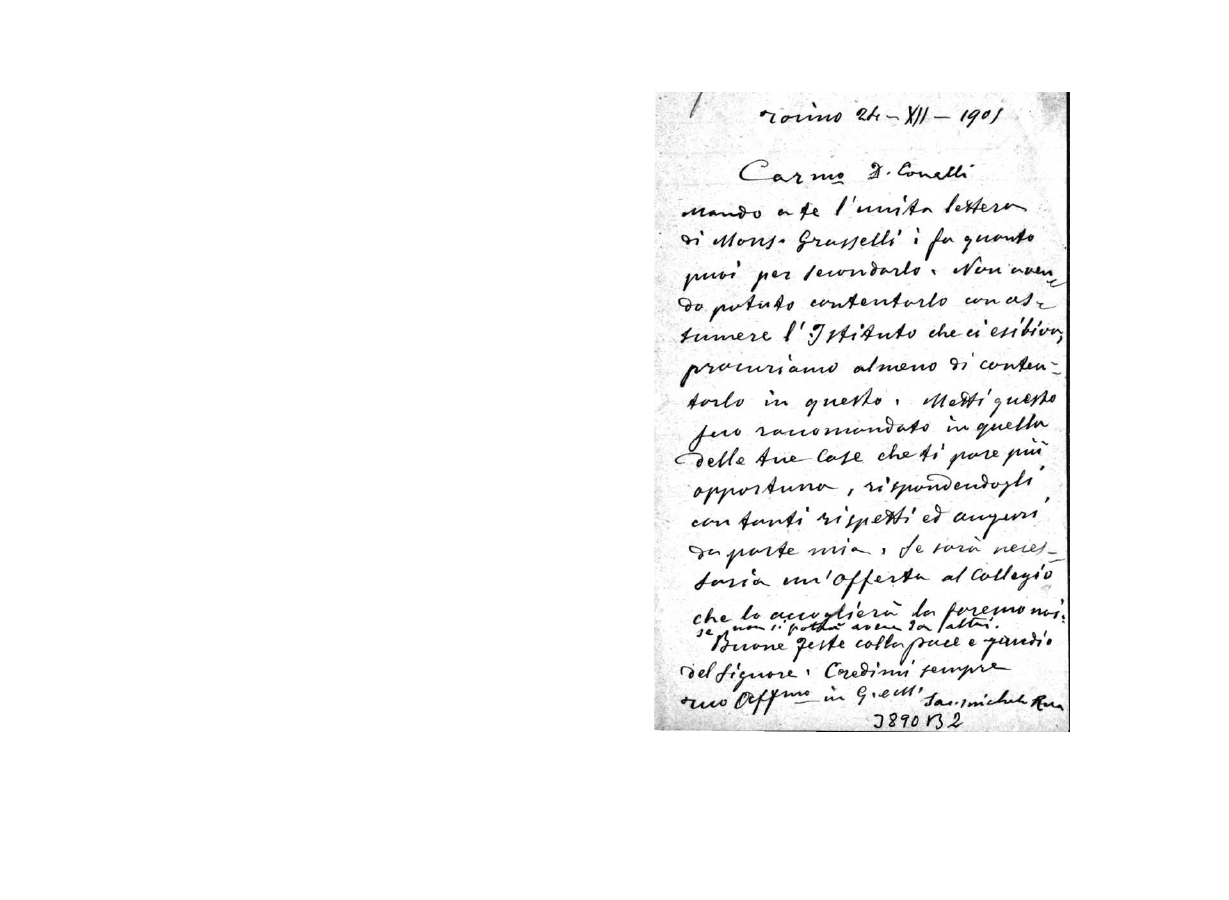 Torino 24 - XII - 1901
Carmo D. Conelli
Mando a te l'unita lettera
di Mons. Grasselli; fa quanto
puoi per secondarlo. Non aven-
do potuto contentarlo con as-
sumere l'Istituto che ci esibiva,
procuriamo almeno di conten-
tarlo in questo. Metti questo
suo raccomandato in quella
delle tue Case che ti pare più
opportuna, rispondendogli
con tanti rispetti ed auguri
da parte mia. Se sarà neces-
saria un'offerta al Collegio
che lo accoglierà la faremo noi.
se non si potrà avere da altri.
Buone feste colla pace e gaudio
del Signore. Credimi sempre
tuo Affmo in G. e M.
Sac. Michele Rua
3890 B 2